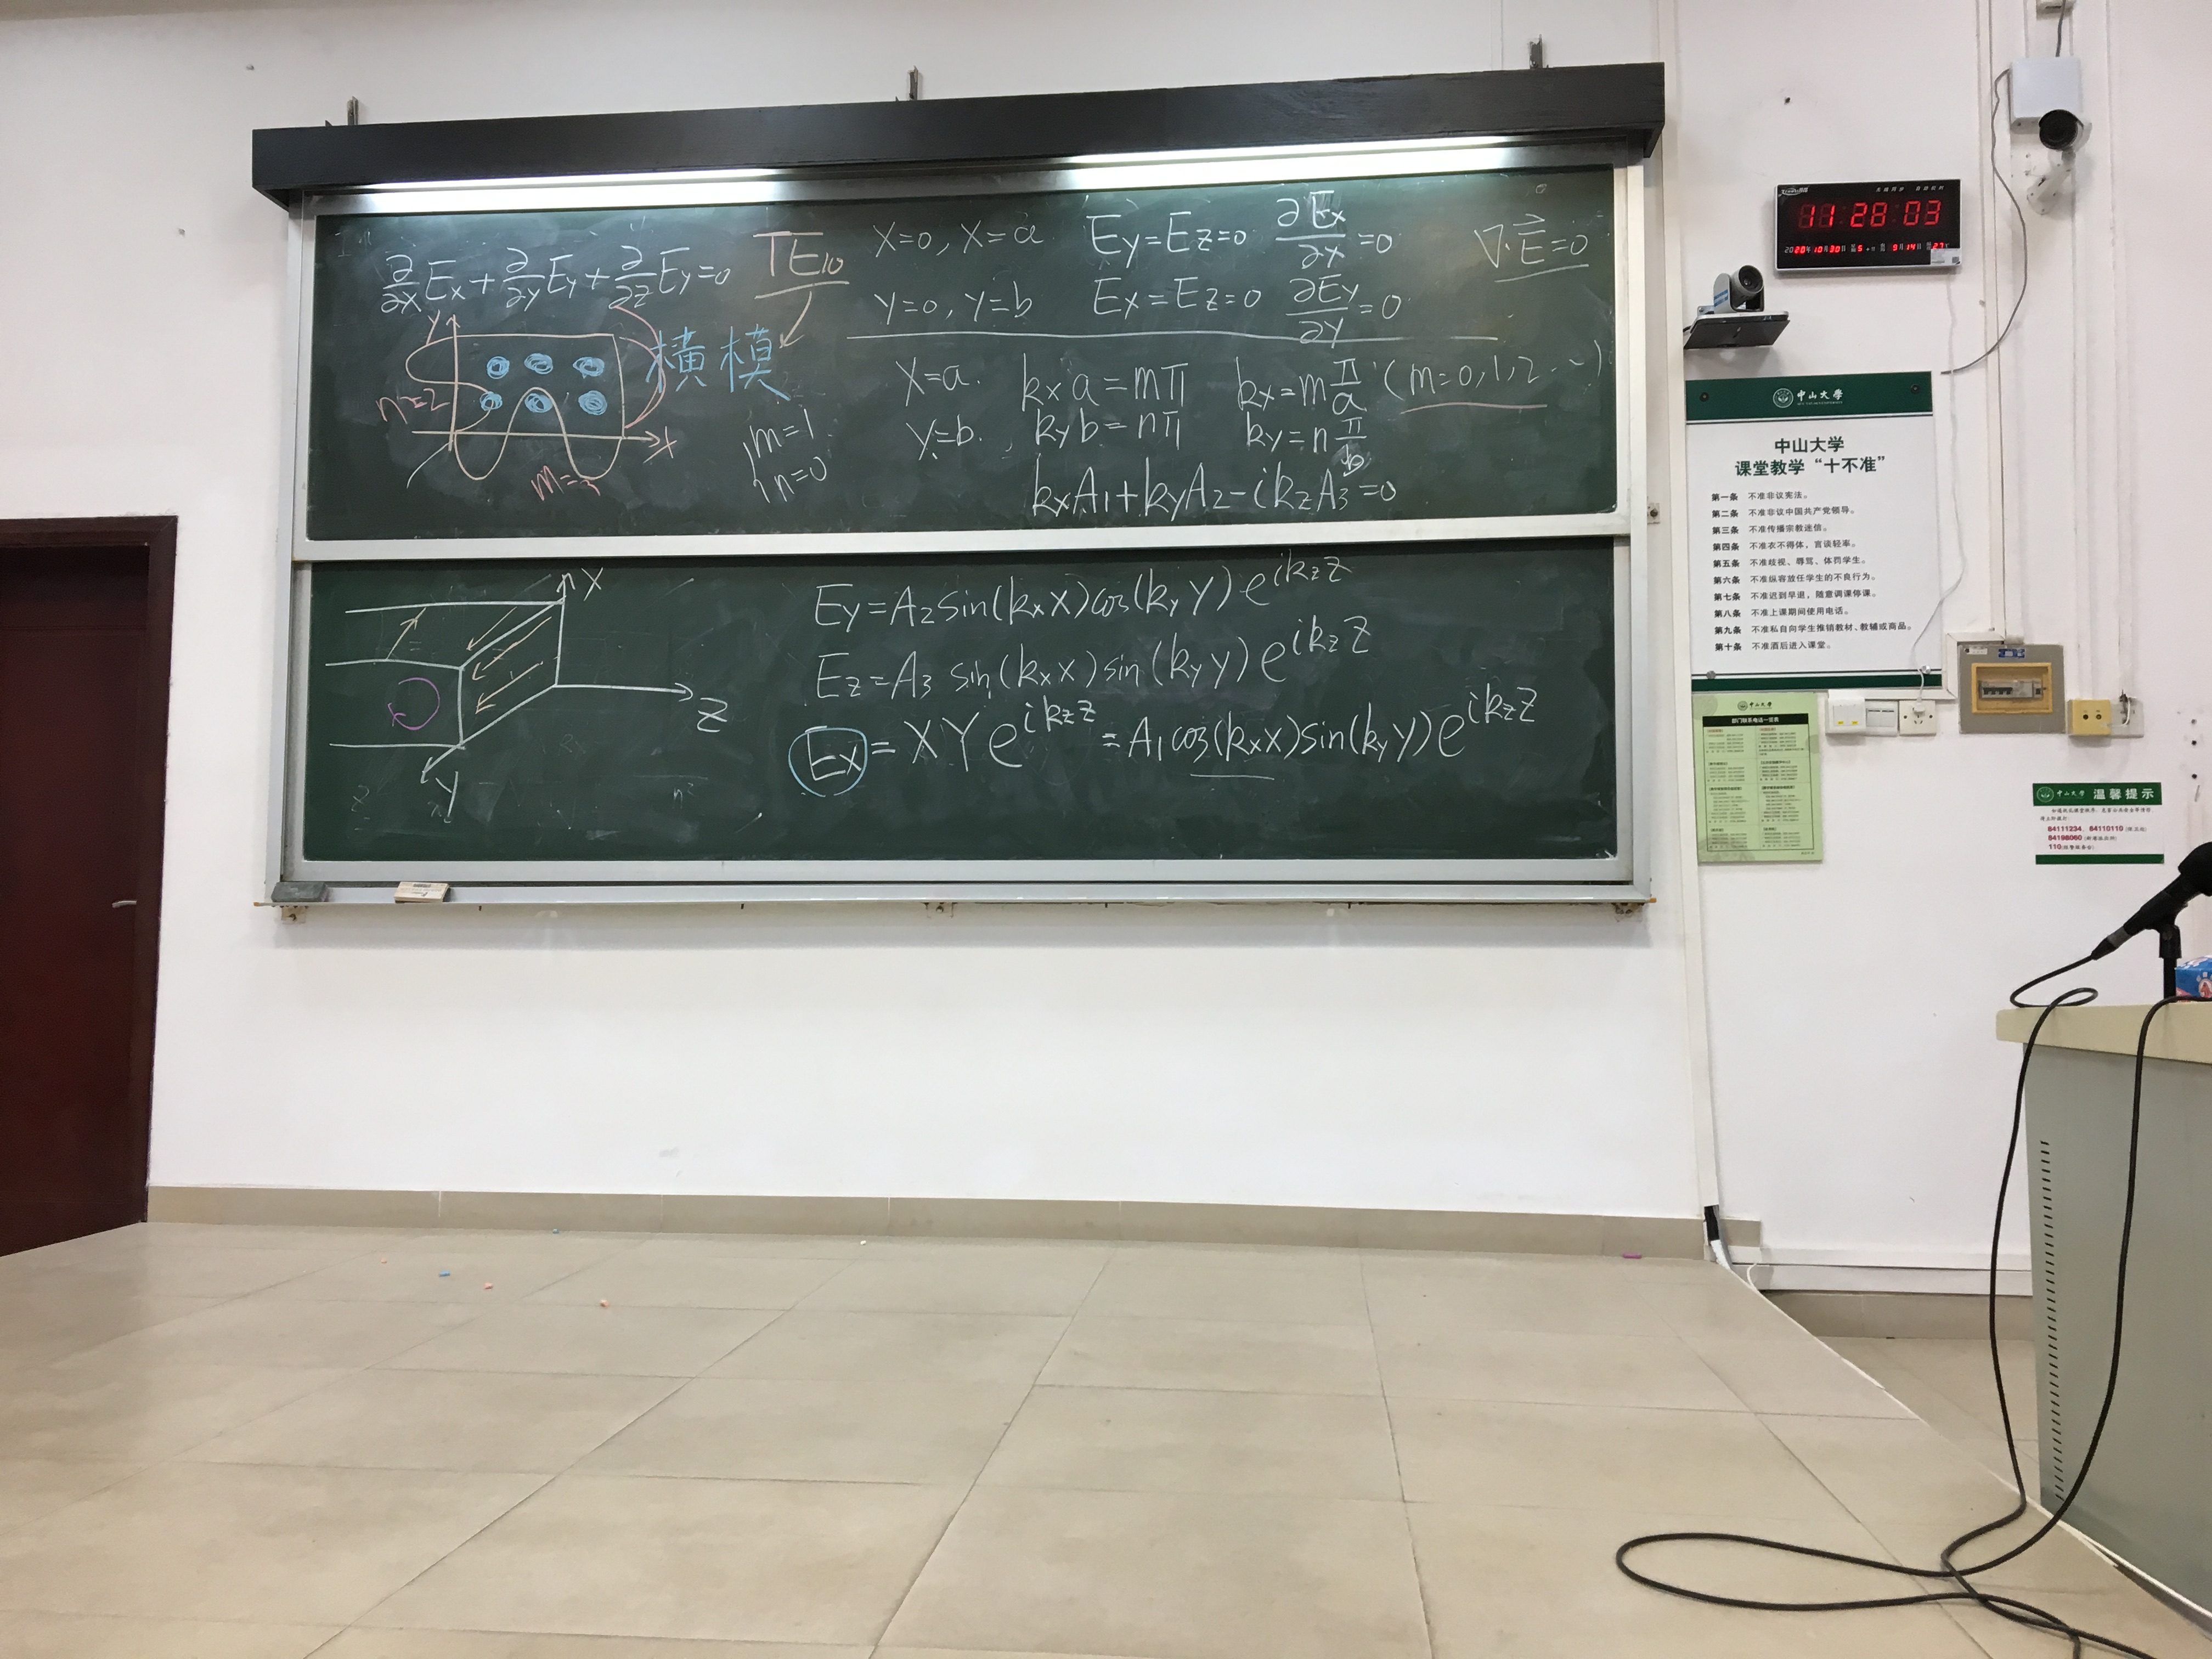 ∂/∂x Ex + ∂/∂y Ey + ∂/∂z Ey = 0
TE10
横模
Y
X
n=2
m=3
m=1
n=0
X=0, X=a Ey=Ez=0 ∂Ex/∂x=0
∇·E⃗=0
Y=0, Y=b Ex=Ez=0 ∂Ey/∂y=0
X=a. kx a=mπ kx=m π/a (m=0,1,2···)
Y=b. ky b=nπ ky=n π/b
kxA1+kyA2-ikzA3=0
X
Z
Y
Ey=A2 sin(kxX)cos(kyY)e^ikzz
Ez=A3 sin(kxX)sin(kyY)e^ikzz
Ex=XYe^ikzz=A1cos(kxX)sin(kyY)e^ikzz
11:28:03
2020年10月30日
5
9月14日
27℃
中山大学
中山大学
课堂教学“十不准”
第一条 不准非议宪法。
第二条 不准非议中国共产党领导。
第三条 不准传播宗教迷信。
第四条 不准衣不得体,言谈轻率。
第五条 不准歧视、辱骂、体罚学生。
第六条 不准纵容放任学生的不良行为。
第七条 不准迟到早退,随意调课停课。
第八条 不准上课期间使用电话。
第九条 不准私自向学生推销教材、教辅或商品。
第十条 不准酒后进入课堂。
中山大学
部门联系电话一览表
中山大学 温馨提示
84111234、84110110
84198060
110